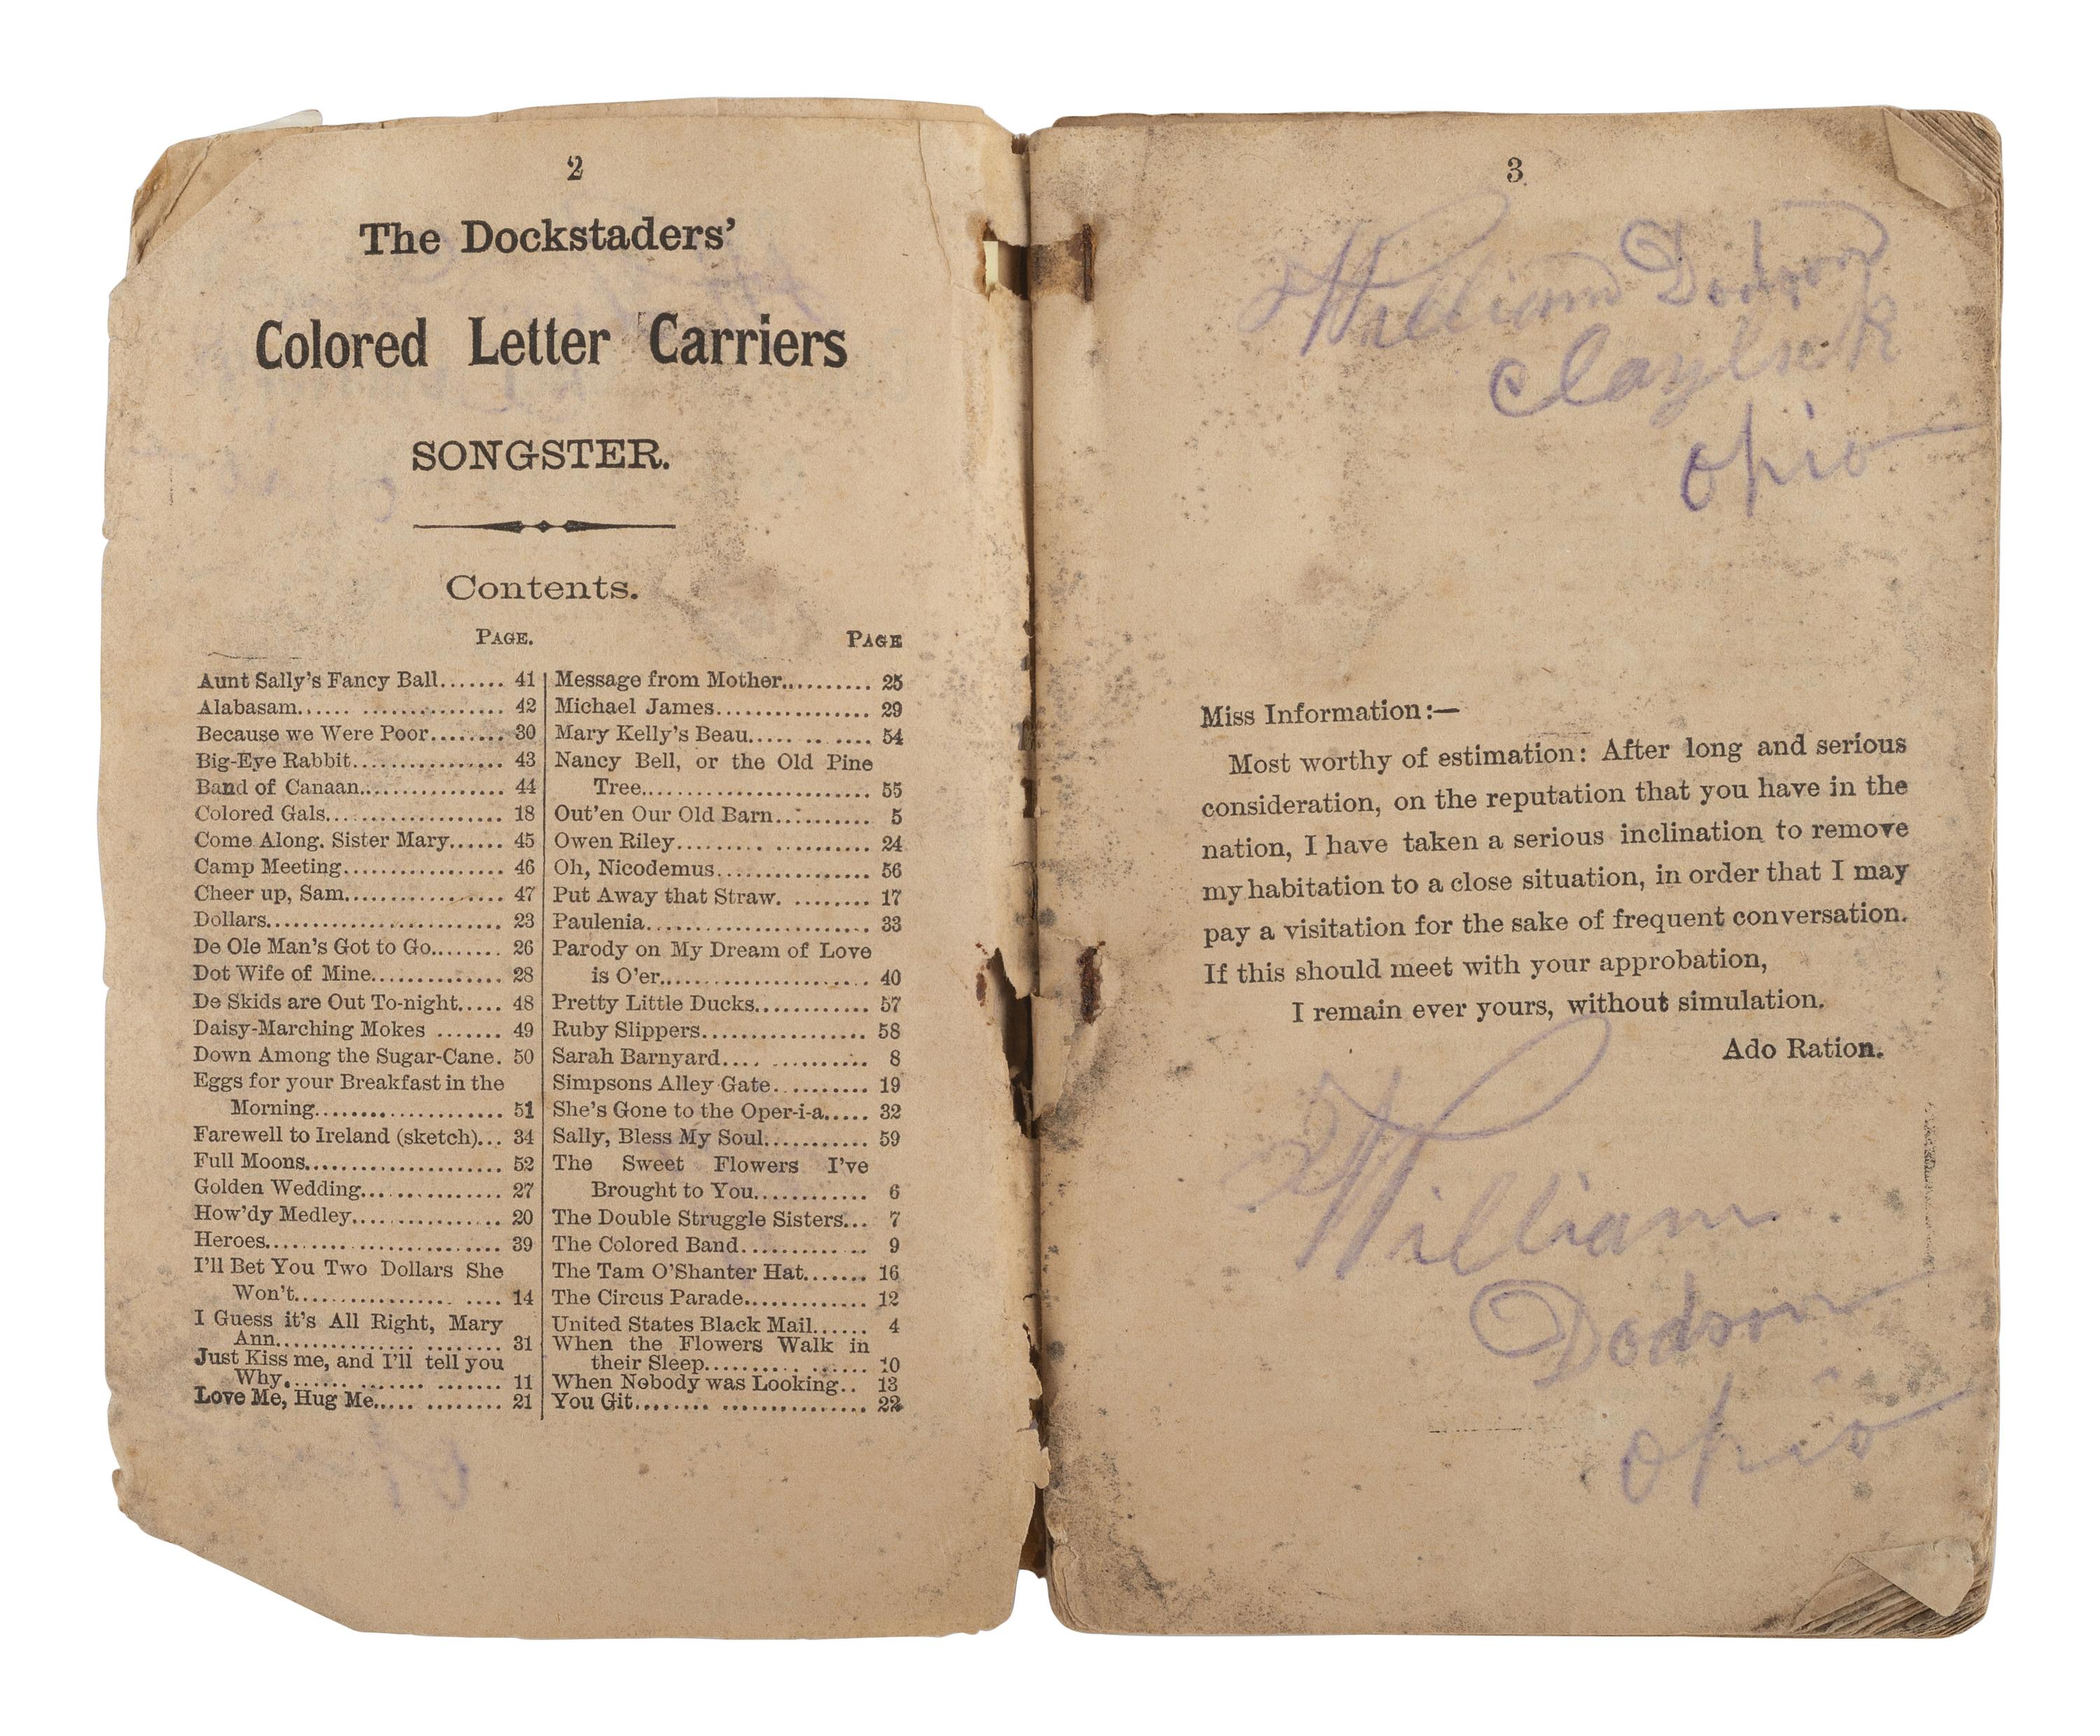 2
The Dockstaders'
Colored Letter Carriers
SONGSTER.
Contents.
PAGE.
Aunt Sally's Fancy Ball....... 41
Alabasam...... ............... 42
Because we Were Poor........ 30
Big-Eye Rabbit................ 43
Band of Canaan................ 44
Colored Gals.................... 18
Come Along. Sister Mary...... 45
Camp Meeting.................. 46
Cheer up, Sam.................. 47
Dollars.......................... 23
De Ole Man's Got to Go........ 26
Dot Wife of Mine.............. 28
De Skids are Out To-night..... 48
Daisy-Marching Mokes ....... 49
Down Among the Sugar-Cane. 50
Eggs for your Breakfast in the
Morning.................... 51
Farewell to Ireland (sketch)... 34
Full Moons..................... 52
Golden Wedding............... 27
How'dy Medley................ 20
Heroes......................... 39
I'll Bet You Two Dollars She
Won't................. .... 14
I Guess it's All Right, Mary
Ann............... ........ 31
Just Kiss me, and I'll tell you
Why....... ....... ....... 11
Love Me, Hug Me..... ........ 21
PAGE
Message from Mother.......... 25
Michael James................. 29
Mary Kelly's Beau..... .. .... 54
Nancy Bell, or the Old Pine
Tree........................ 55
Out'en Our Old Barn........... 5
Owen Riley......... .......... 24
Oh, Nicodemus................. 56
Put Away that Straw. ........ 17
Paulenia........................ 33
Parody on My Dream of Love
is O'er...................... 40
Pretty Little Ducks............ 57
Ruby Slippers.................. 58
Sarah Barnyard.... .......... 8
Simpsons Alley Gate.......... 19
She's Gone to the Oper-i-a..... 32
Sally, Bless My Soul........... 59
The Sweet Flowers I've
Brought to You............ 6
The Double Struggle Sisters... 7
The Colored Band.......... .. 9
The Tam O'Shanter Hat....... 16
The Circus Parade............. 12
United States Black Mail...... 4
When the Flowers Walk in
their Sleep.......... ...... 10
When Nobody was Looking.. 13
You Git........ ............... 22
3
William Dodson
Ohio
Miss Information:—
Most worthy of estimation: After long and serious
consideration, on the reputation that you have in the
nation, I have taken a serious inclination to remove
my habitation to a close situation, in order that I may
pay a visitation for the sake of frequent conversation.
If this should meet with your approbation,
I remain ever yours, without simulation.
Ado Ration.
William
Dodson
Ohio